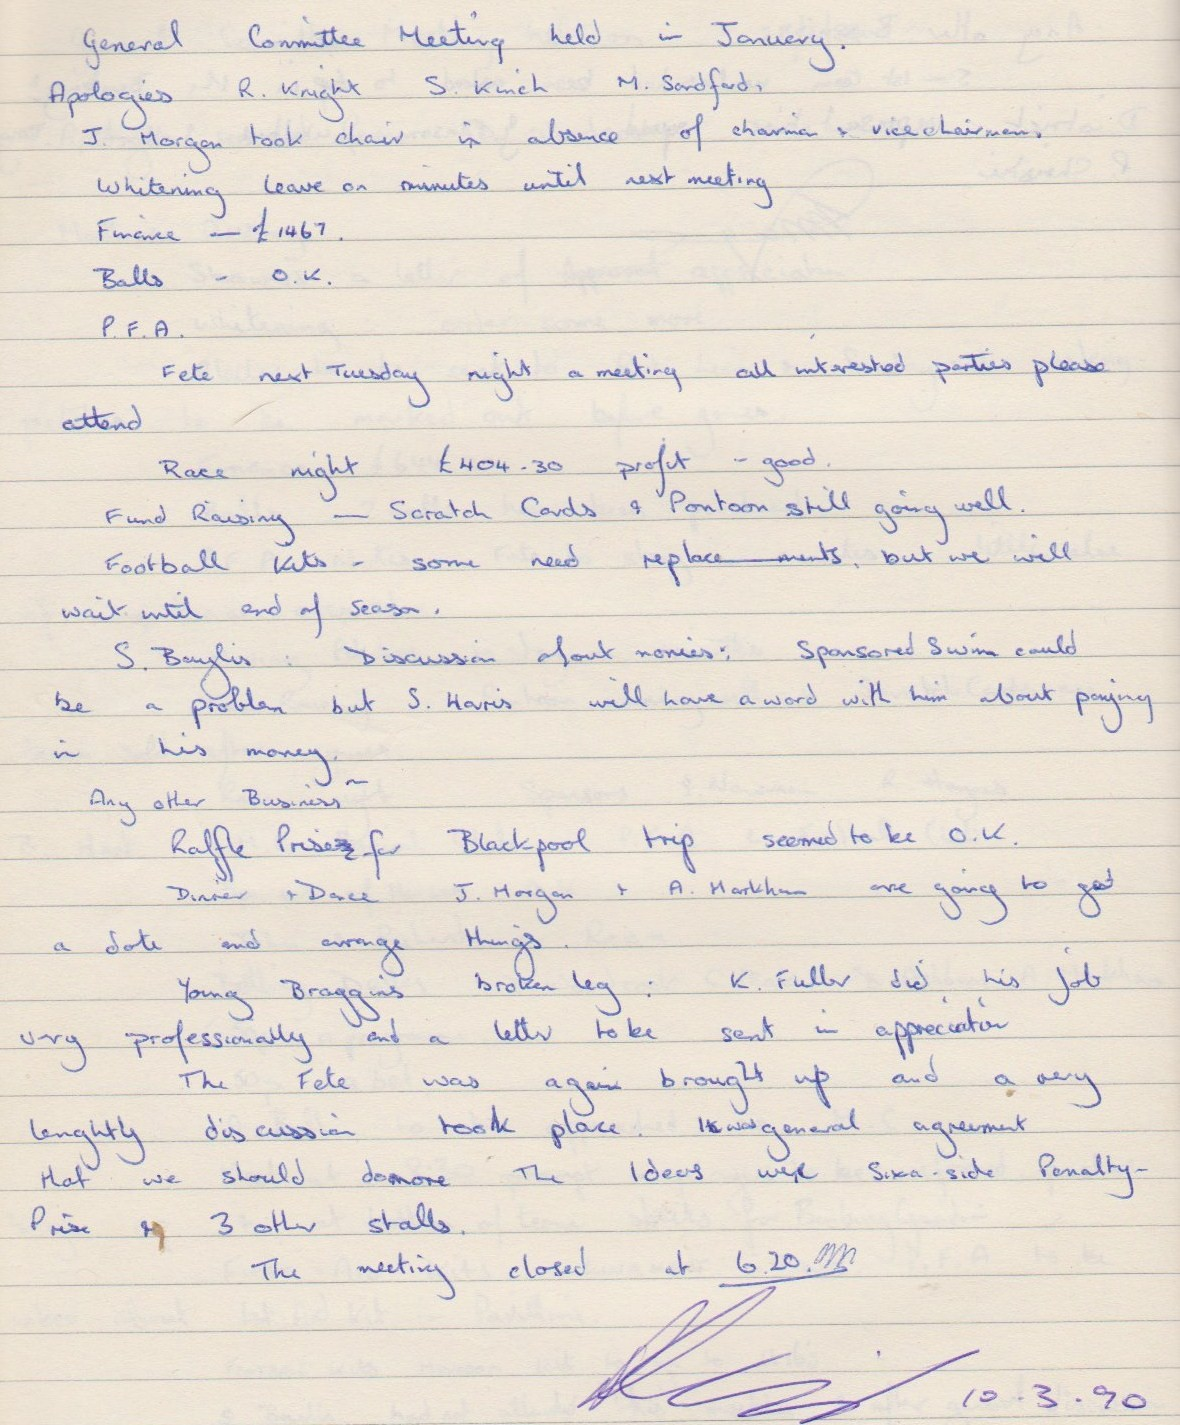 General Committee Meeting held in January.
Apologies R. Knight S. Kinch M. Sandford.
J. Morgan took chair in absence of charman & vice chairman.
Whitening leave on minutes until next meeting
Finance — £1467.
Balls - O.K.
P.F.A.
Fete next Tuesday night a meeting all interested parties please
attend
Race night £404-30 profit - good.
Fund Raising — Scratch Cards & Pontoon still going well.
Football Kits - some need replacements, but we will
wait until end of season.
S. Baylis : Discussion about monies: Sponsored Swim could
be a problem but S. Harris will have a word with him about paying
in his money.
Any other Business
Raffle Prises for Blackpool trip seemed to be O.K.
Dinner & Dance J. Morgan & A. Markham are going to get
a date and arrange things.
Young Braggins broken leg : K. Fuller did his job
very professionally and a letter to be sent in appreciation
The Fete was again brought up and a very
lenghtly discussion took place. It was general agreement
that we should do more The Ideas were Six-a-side Penalty-
Prise 3 other stalls.
The meeting closed at 6.20.
10-3-90